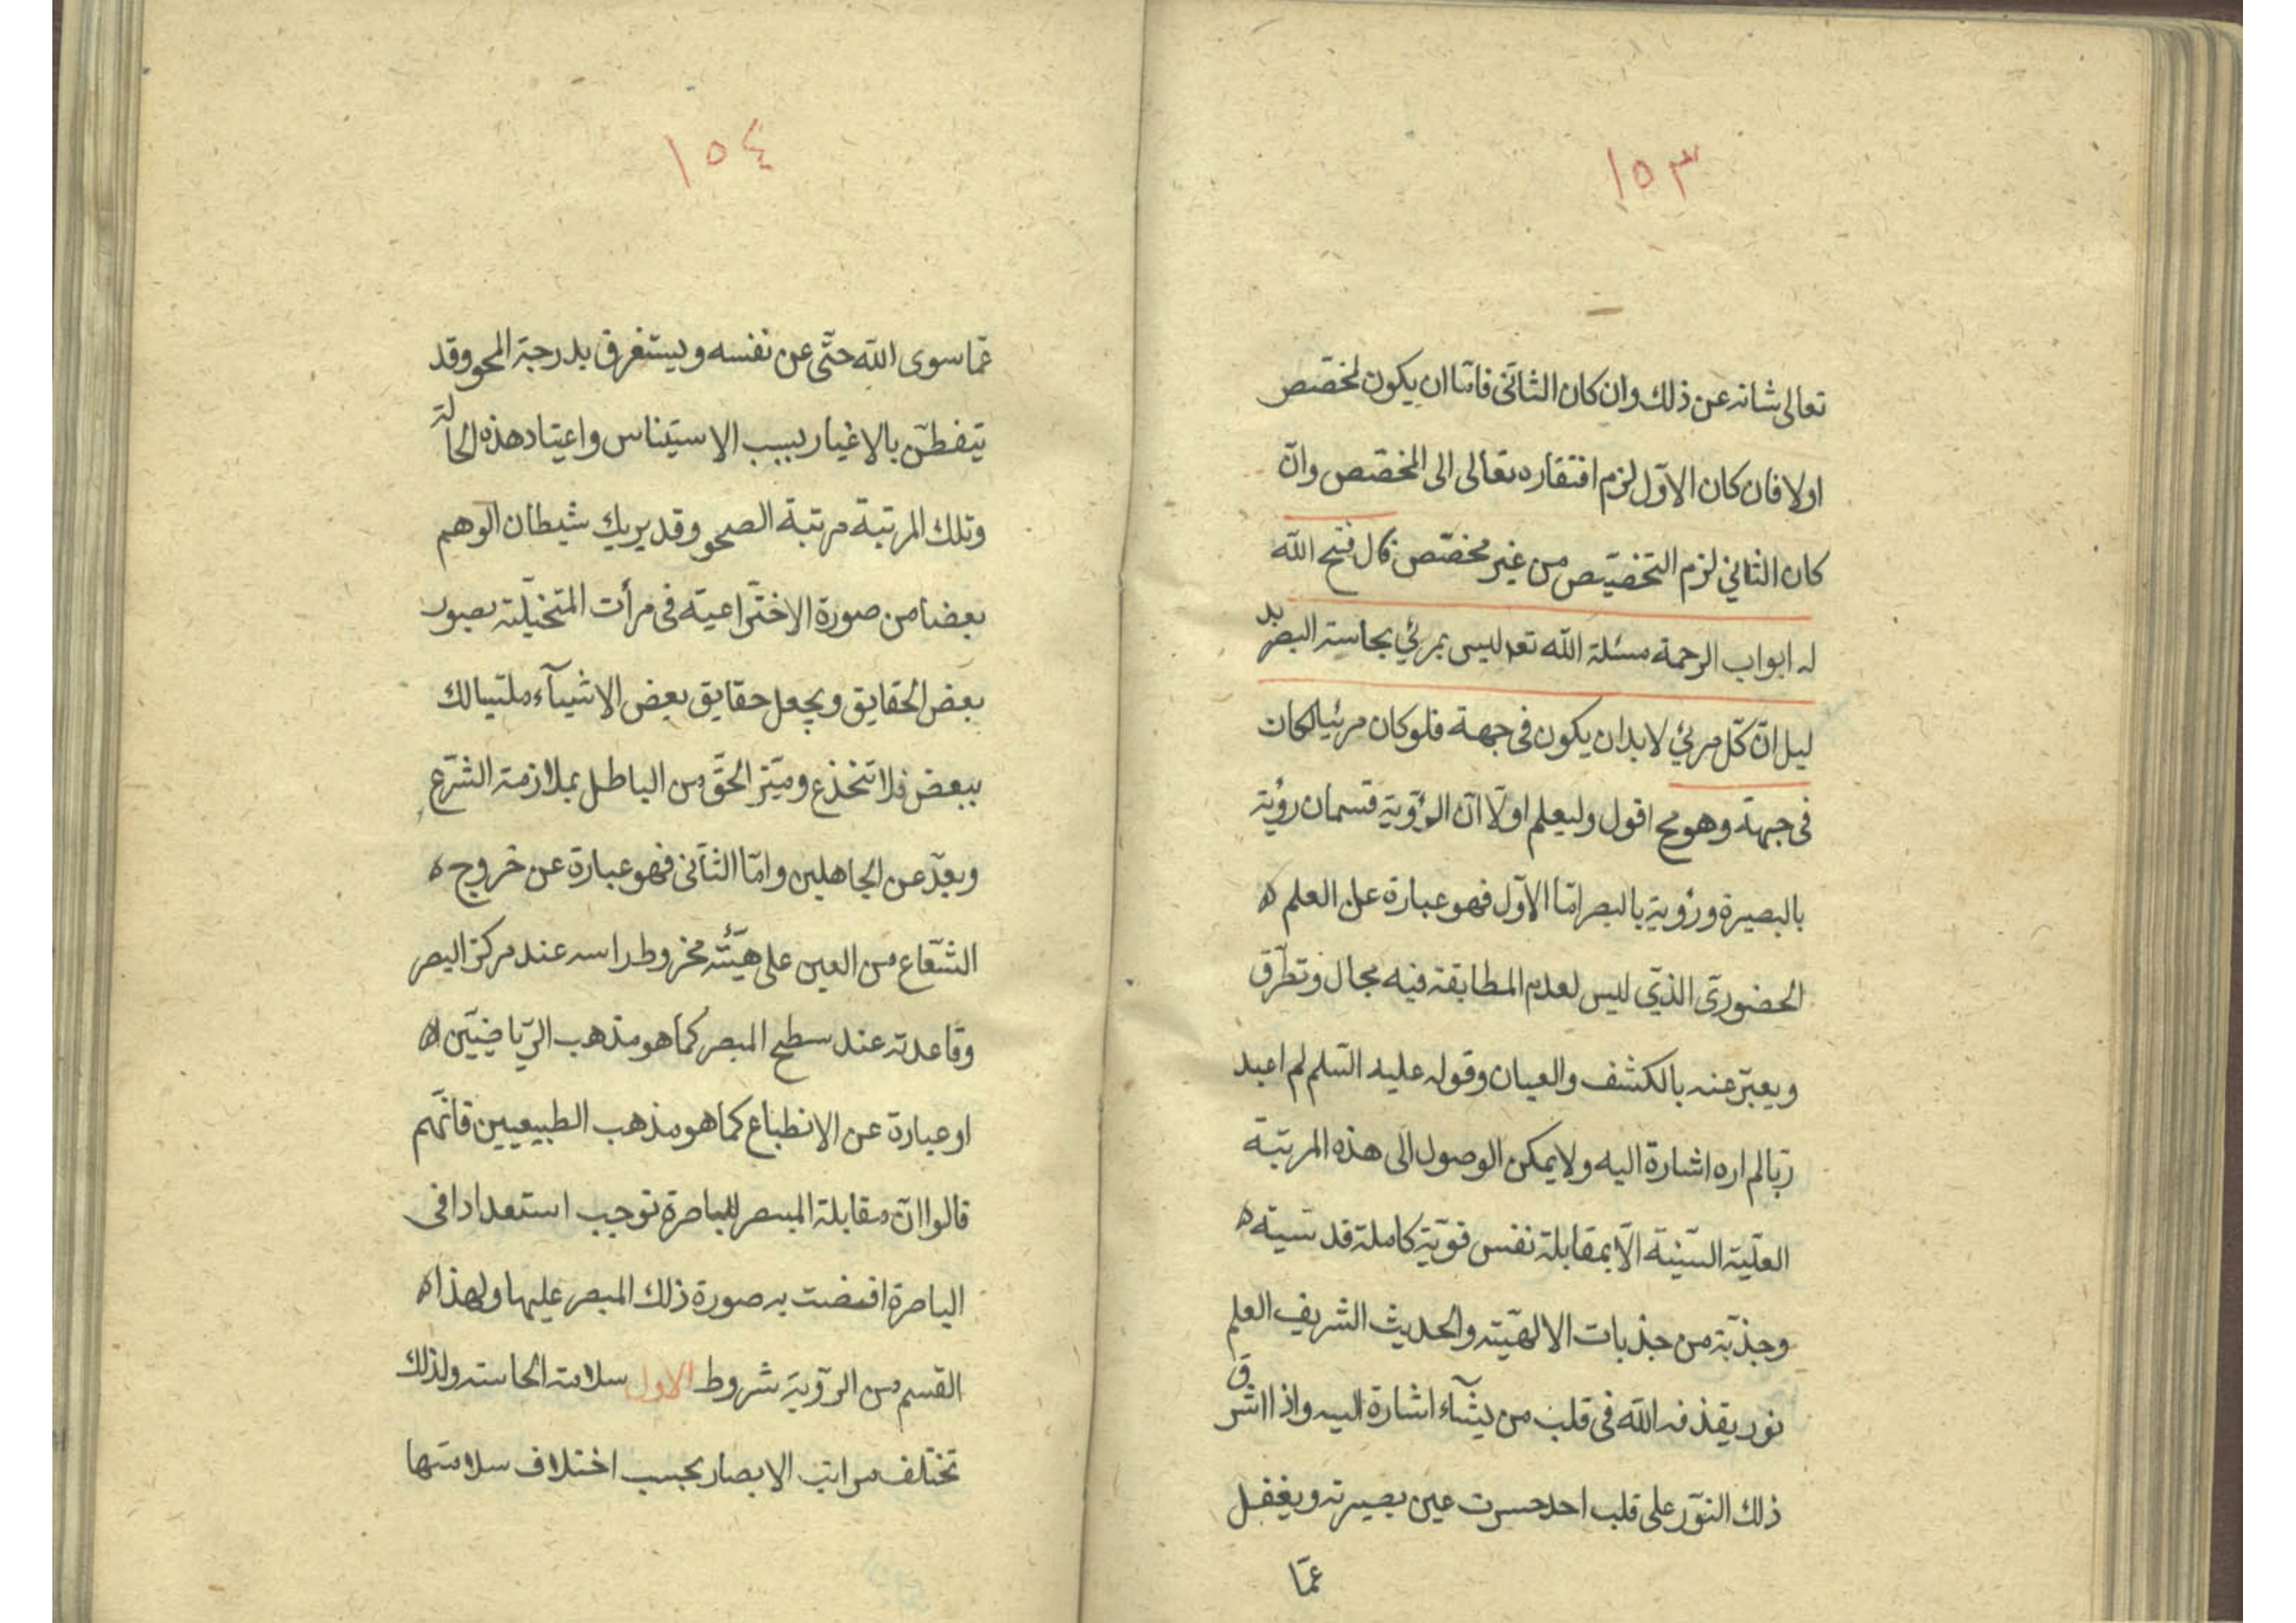 ١٥٣
تعالى شانه عن ذلك وان كان الثانى فامّا ان يكون لمخصّص
اولا فان كان الاوّل لزم افتقاره تعالى الى المخصّص وانّ
كان الثاني لزم التخصيص من غير مخصّص قال فتح الله
له ابواب الرحمة مسئلة الله تعه ليس بمرئي بحاسة البصر بد
ليل انّ كلّ مرئي لابد ان يكون فى جهة فلو كان مرئيا لكان
فى جهة وهو مح اقول وليعلم اوّلا انّ الرؤية قسمان رؤية
بالبصيرة ورؤية بالبصر امّا الاوّل فهو عبارة عن العلم
الحضورى الذي ليس لعدم المطابقة فيه مجال وتطرّق
ويعبّر عنه بالكشف والعيان وقوله عليه السّلم لم اعبد
ربّا لم اره اشارة اليه ولا يمكن الوصول الى هذه المرتبة
العليّة السّنيّة الّا بمقابلة نفس قويّة كاملة قدسيّة
وجذبة من جذبات الالهيّة والحديث الشريف العلم
نور يقذفه الله فى قلب من يشآء اشارة اليه واذا اشرق
ذلك النّور على قلب احد حسرت عين بصيرته ويغفل
عمّا
١٥٤
عمّا سوى الله حتّى عن نفسه ويستغرق بدرجة المحو وقد
يتفطّن بالاغيار بسبب الاستيناس واعتياد هذه الحالة
وتلك المرتبة مرتبة الصحو وقد يريك شيطان الوهم
بعضا من صورة الاختراعيّة فى مرأت المتخيّلة بصور
بعض الحقايق ويجعل حقايق بعض الاشيآء ملتبسا لك
ببعض فلا تنخدع وميّز الحقّ من الباطل بملازمة الشّرع
وبعّد عن الجاهلين وامّا الثّانى فهو عبارة عن خروج
الشّعاع من العين على هيئة مخروط راسه عند مركز البصر
وقاعدته عند سطح المبصر كما هو مذهب الرّياضيّين
او عبارة عن الانطباع كما هو مذهب الطبيعيين فانّهم
قالوا انّ مقابلة المبصر للباصرة توجب استعدادا فى
الباصرة افيضت به صورة ذلك المبصر عليها ولهذا
القسم من الرؤية شروط الاول سلامة الحاسة ولذلك
تختلف مراتب الابصار بحسب اختلاف سلامتها